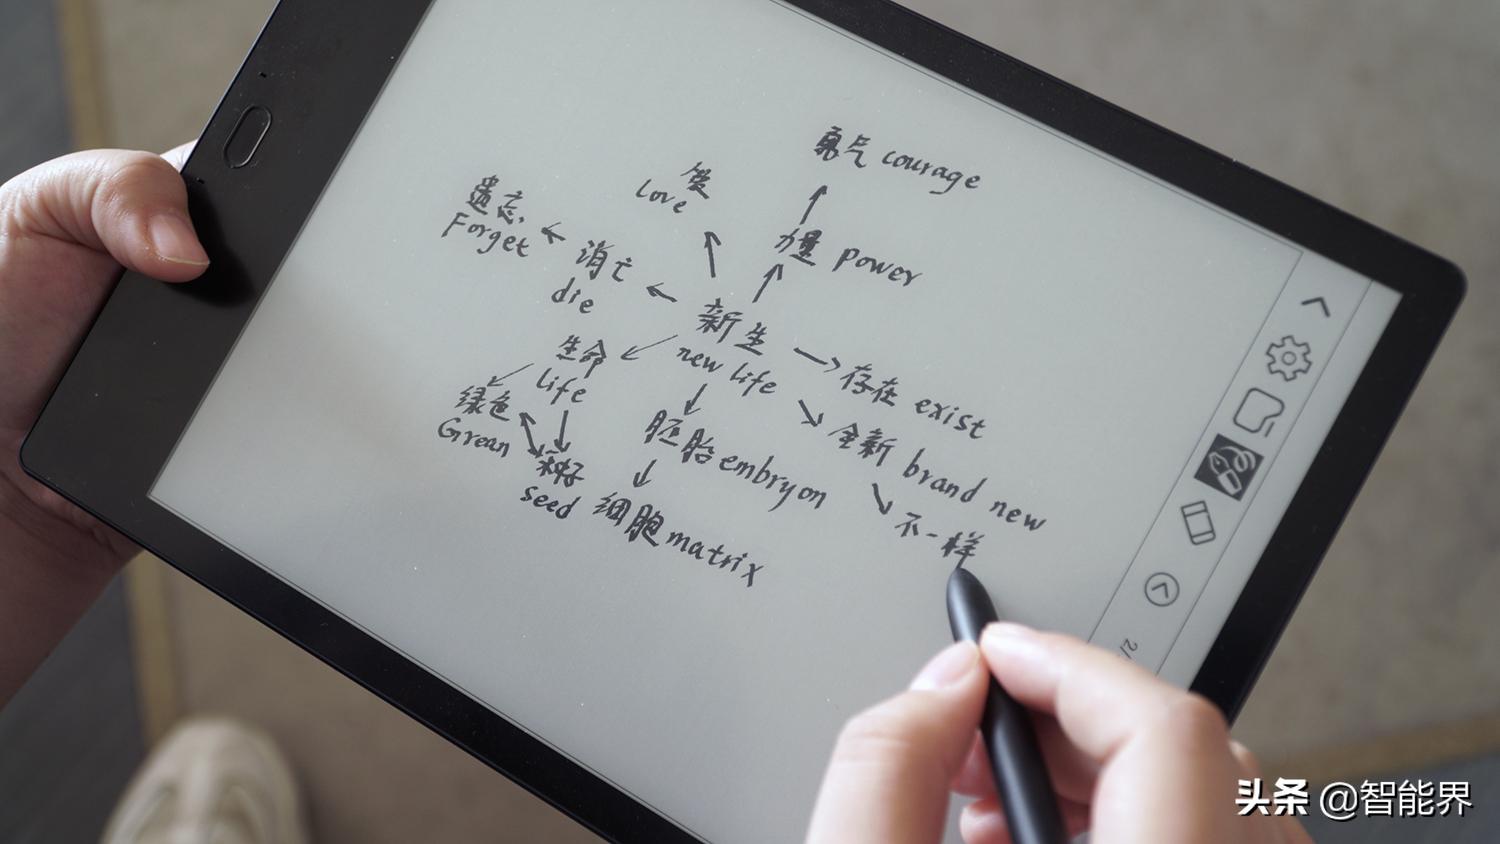 勇气 courage
爱
Love
力量 power
遗忘
Forget
消亡
die
新生
new life
生命
life
存在 exist
绿色
Grean
全新 brand new
胚胎 embryon
种子
seed
不一样
细胞 matrix
2/
头条 @智能界